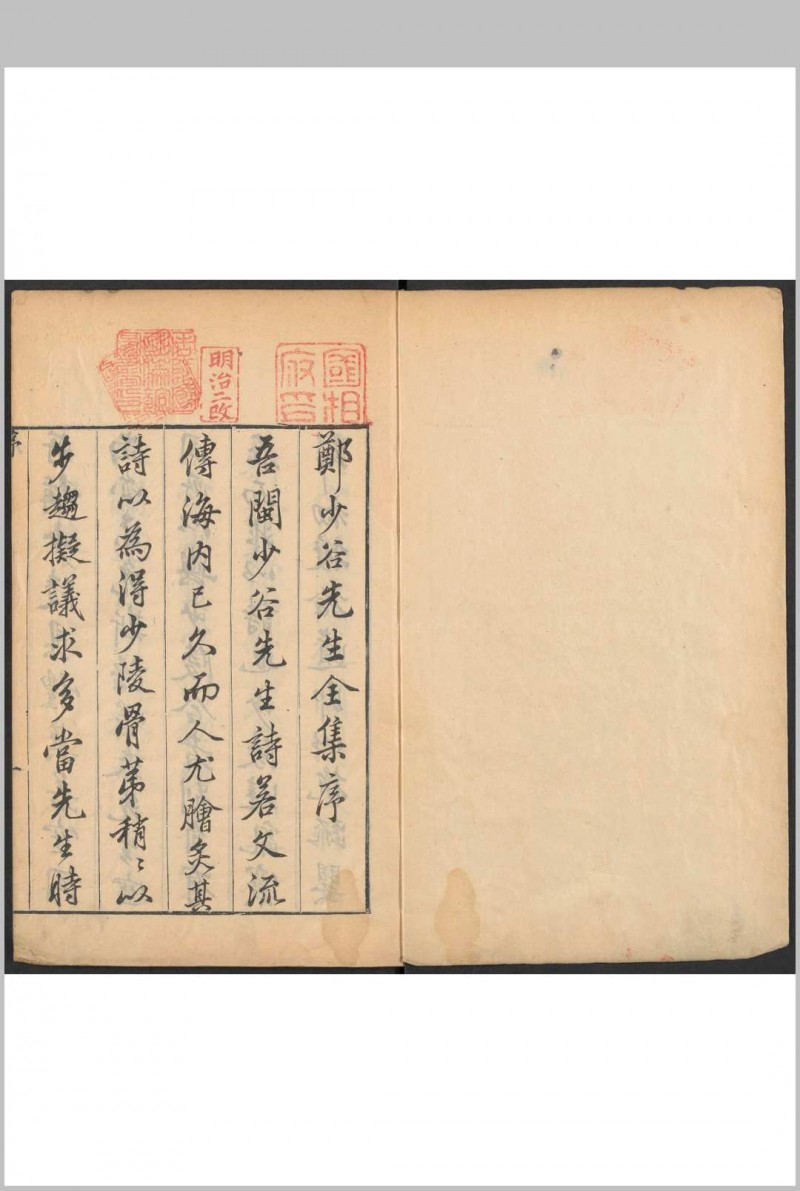 國相
府印
明治二改
鄭少谷先生全集序
吾閩少谷先生詩若文流
傳海内已久而人尤膾炙其
詩以為得少陵骨苐稍〻以
步趨擬議求多當先生時
序
一